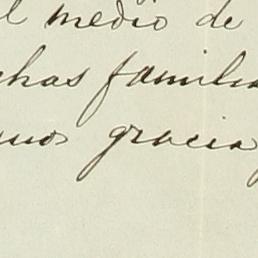 el medio de
chas familia
mos gracia